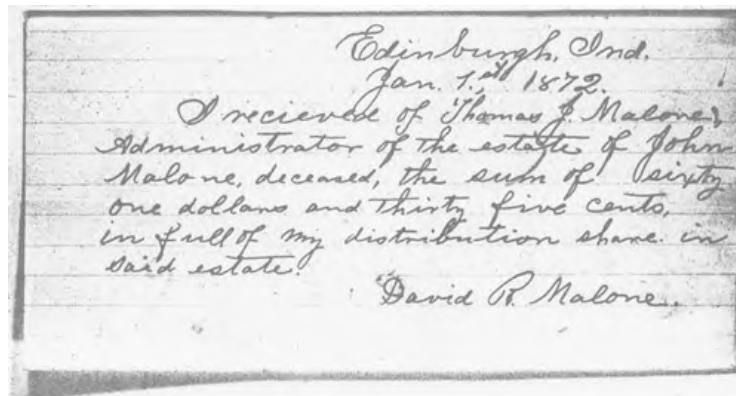 Edinburgh, Ind.
Jan. 1.st, 1872.
I recieved of Thomas J. Malone,
Administrator of the estate of John
Malone, deceased, the sum of sixty
one dollars and thirty five cents,
in full of my distribution share in
said estate.
David R. Malone.